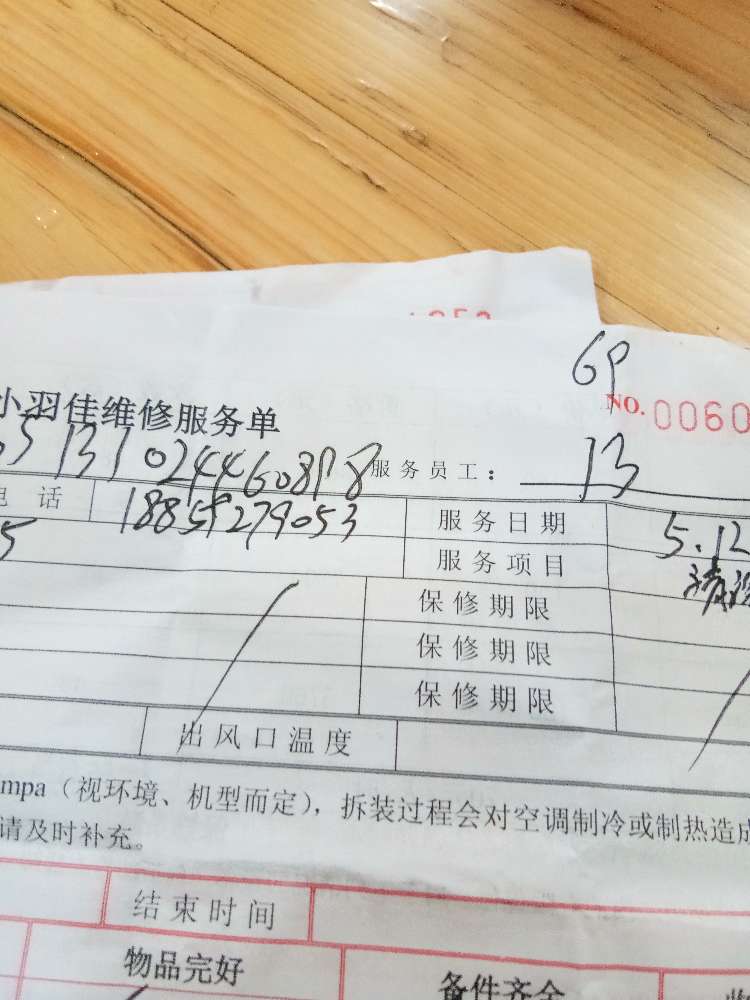 69
NO.0060
小羽佳维修服务单
05131024460898 服务员工: 13
电话 18859279053 服务日期 5.12
5 服务项目 清洗
保修期限
保修期限
保修期限
出风口温度
mpa（视环境、机型而定），拆装过程会对空调制冷或制热造成
请及时补充。
结束时间
物品完好 备件齐全